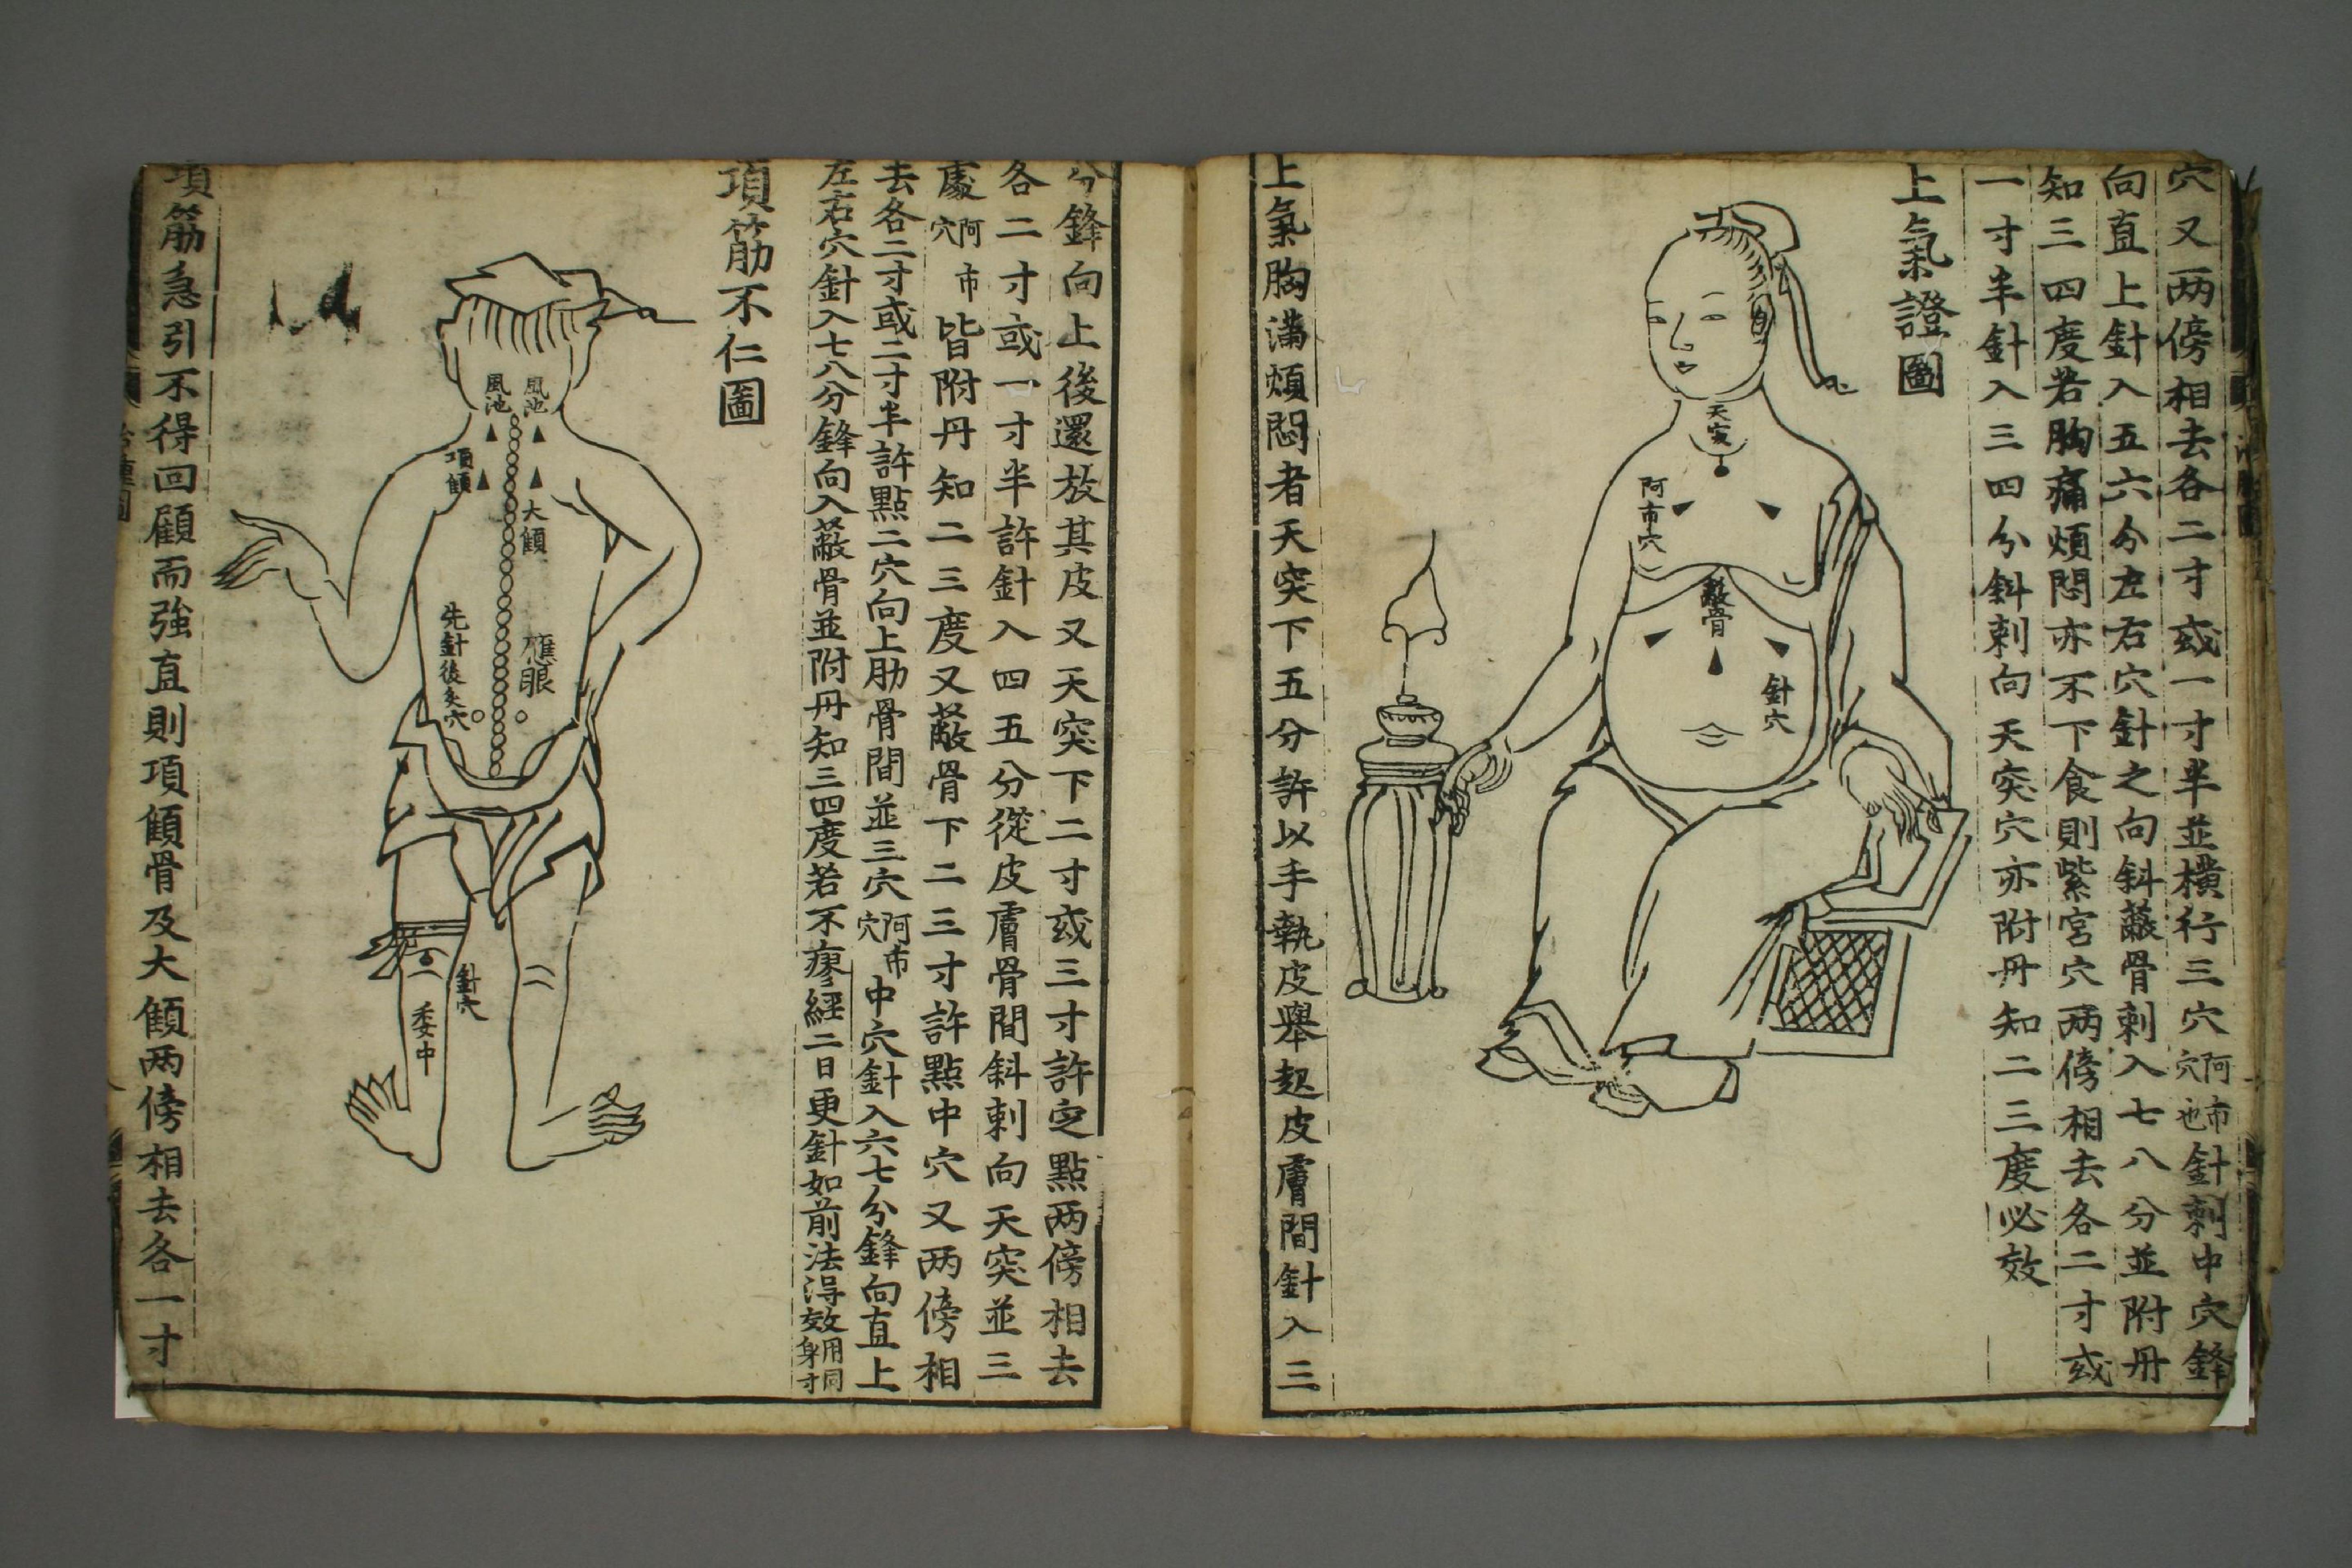 穴又两傍相去各二寸或一寸半並橫行三穴阿市穴也針刺中穴鋒
向直上針入五六分左右穴針之向斜蔽骨刺入七八分並附丹
知三四度若胸痛煩悶亦不下食則紫宮穴两傍相去各二寸或
一寸半針入三四分斜刺向天突穴亦附丹知二三度必效
上氣證圖
天突
阿市穴
蔽骨
針穴
上氣胸滿煩悶者天突下五分許以手執皮舉起皮膚間針入三
分鋒向上後還放其皮又天突下二寸或三寸許定點两傍相去
各二寸或一寸半許針入四五分從皮膚骨間斜刺向天突並三
處阿市穴皆附丹知二三度又蔽骨下二三寸許點中穴又两傍相
去各二寸或二寸半許點二穴向上肋骨間並三穴阿市穴中穴針入六七分鋒向直上
左右穴針入七八分鋒向入蔽骨並附丹知三四度若不瘳經二日更針如前法得效用同身寸
項筋不仁圖
風池
風池
項顀
大顀
雁眼
先針後灸穴
針穴
委中
項筋急引不得回顧而強直則項顀骨及大顀两傍相去各一寸